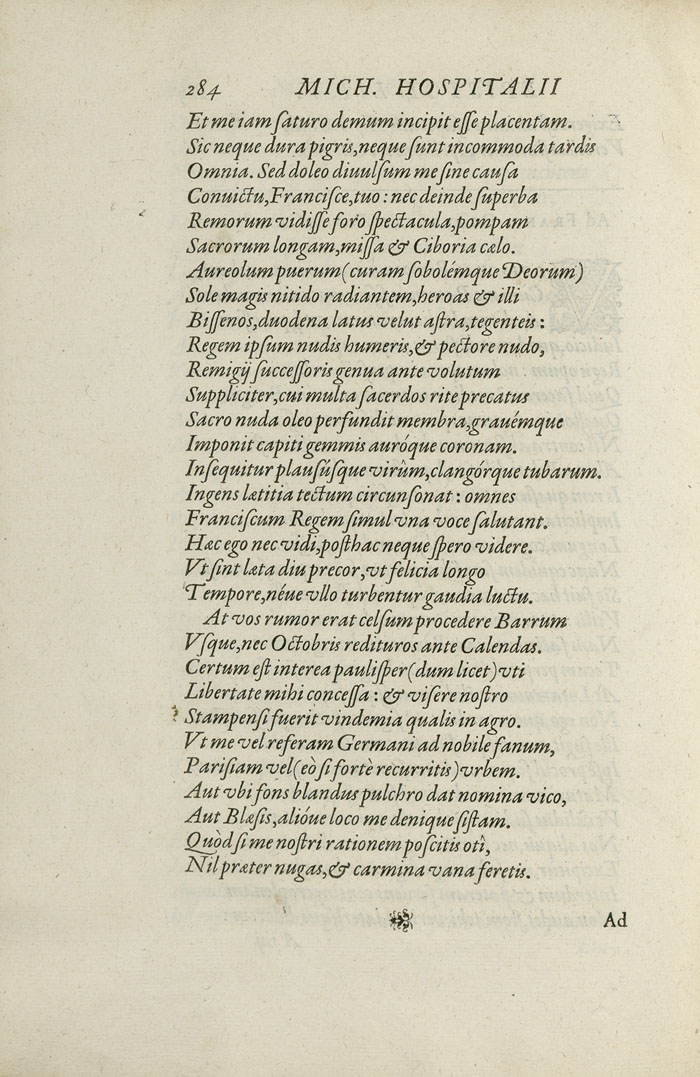 284 MICH. HOSPITALII
Et me iam ſaturo demum incipit eſſe placentam.
Sic neque dura pigris, neque ſunt incommoda tardis
Omnia. Sed doleo diuulſum me ſine cauſa
Conuictu, Franciſce, tuo : nec deinde ſuperba
Remorum vidiſſe foro ſpectacula, pompam
Sacrorum longam, miſſa & Ciboria cælo.
Aureolum puerum (curam ſobolémque Deorum)
Sole magis nitido radiantem, heroas & illi
Biſſenos, duodena latus velut aſtra, tegenteis :
Regem ipſum nudis humeris, & pectore nudo,
Remigij ſucceſſoris genua ante volutum
Suppliciter, cui multa ſacerdos rite precatus
Sacro nuda oleo perfundit membra, grauémque
Imponit capiti gemmis auróque coronam.
Inſequitur plauſúſque virûm, clangórque tubarum.
Ingens lætitia tectum circunſonat : omnes
Franciſcum Regem ſimul vna voce ſalutant.
Hæc ego nec vidi, poſthac neque ſpero videre.
Vt ſint læta diu precor, vt felicia longo
Tempore, néue vllo turbentur gaudia luctu.
At vos rumor erat celſum procedere Barrum
Vſque, nec Octobris redituros ante Calendas.
Certum eſt interea pauliſper (dum licet) vti
Libertate mihi conceſſa : & viſere noſtro
Stampenſi fuerit vindemia qualis in agro.
Vt me vel referam Germani ad nobile fanum,
Pariſiam vel (eò ſi fortè recurritis) vrbem.
Aut vbi fons blandus pulchro dat nomina vico,
Aut Blæſis, alióue loco me denique ſiſtam.
Quòd ſi me noſtri rationem poſcitis otî,
Nil præter nugas, & carmina vana feretis.
Ad